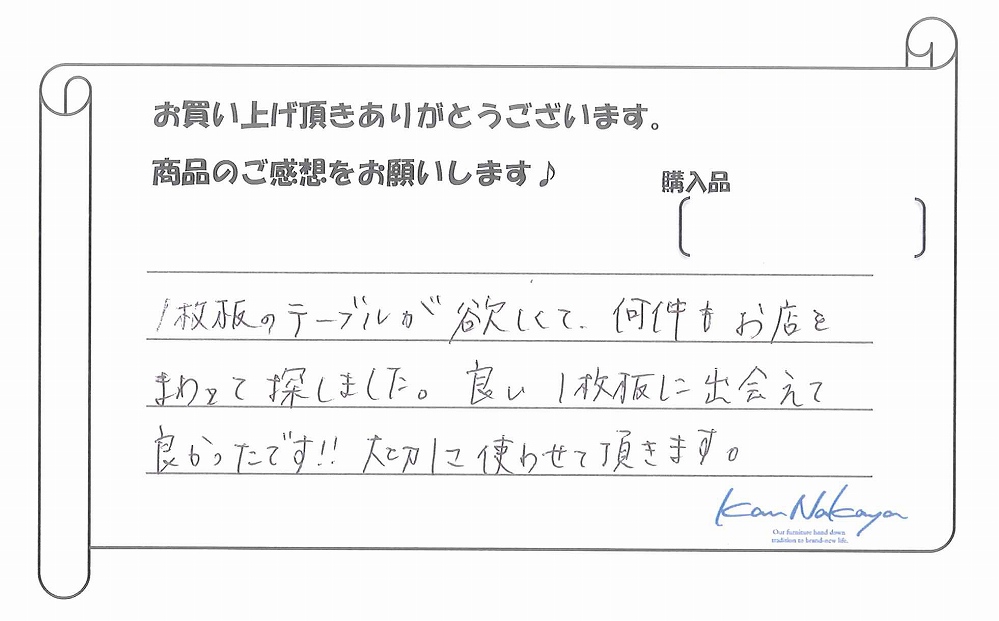 お買い上げ頂きありがとうございます。
商品のご感想をお願いします♪
購入品
1枚板のテーブルが欲しくて、何件もお店を
まわって探しました。良い1枚板に出会えて
良かったです!!大切に使わせて頂きます。
Kan Nakaya
Our furniture hand down
tradition to brand-new life.